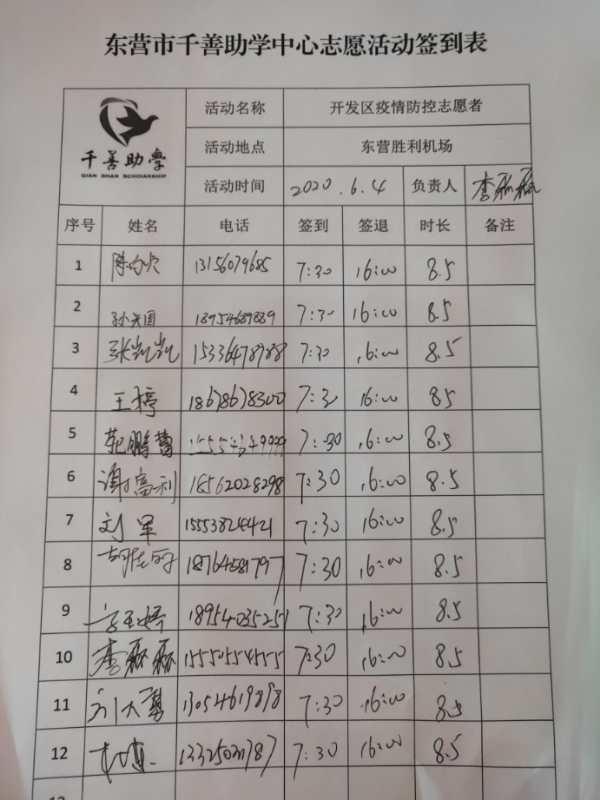 东营市千善助学中心志愿活动签到表
千善助学
QIAN SHAN SCHOLARSHIP
活动名称 开发区疫情防控志愿者
活动地点 东营胜利机场
活动时间 2020.6.4 负责人 李磊磊
序号 姓名 电话 签到 签退 时长 备注
1 13156079685 7:30 16:00 8.5
2 18954689889 7:30 16:00 8.5
3 张凯凯 15336478788 7:30 16:00 8.5
4 王婷 18678678300 7:30 16:00 8.5
5 7:30 16:00 8.5
6 谢高利 18562028298 7:30 16:00 8.5
7 刘军 15553824421 7:30 16:00 8.5
8 18764581797 7:30 16:00 8.5
9 18954035251 7:30 16:00 8.5
10 李磊磊 15550554555 7:30 16:00 8.5
11 13054619898 7:30 16:00 8.5
12 7:30 16:00 8.5